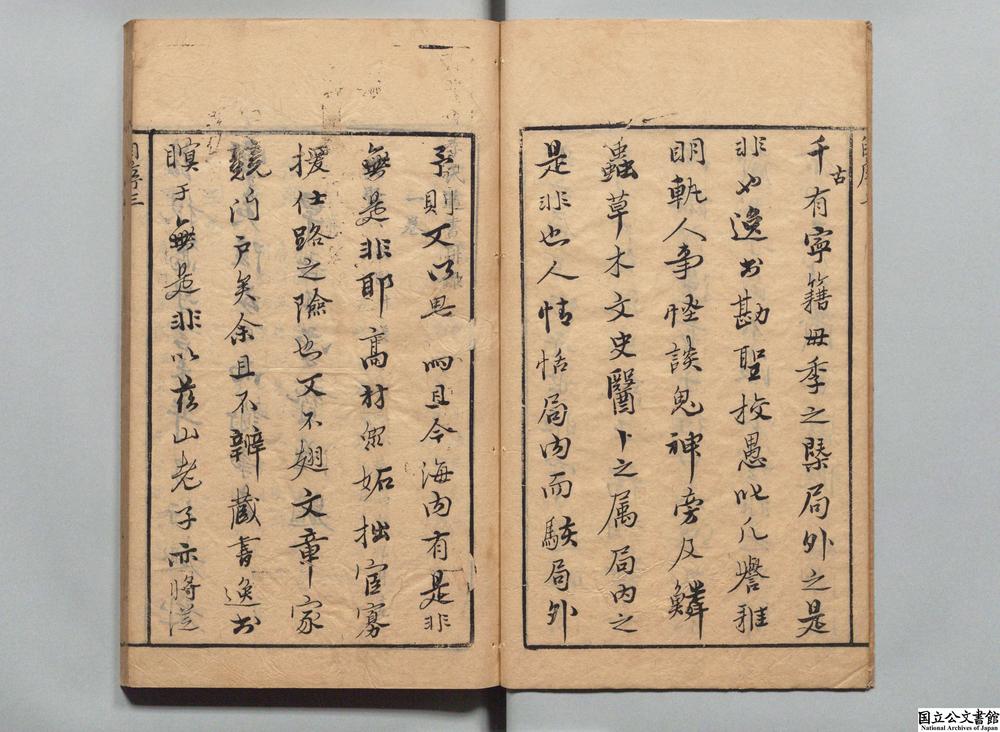 千古有寧籍毋季之槩局外之是
非也逸書勘聖挍愚叱凡譽雅
明執人事怪談鬼神旁及鱗
蟲草木文史醫卜之属局内之
是非也人情恬局内而駭局外
予則又以思而且今海内有是非
無是非耶高材興妬拙宦寡
援仕路之險也又不翅文章家
競門户矣余且不辨藏書逸書
暝于無是非以茲山老子亦將從
自序三
国立公文書館
National Archives of Japan